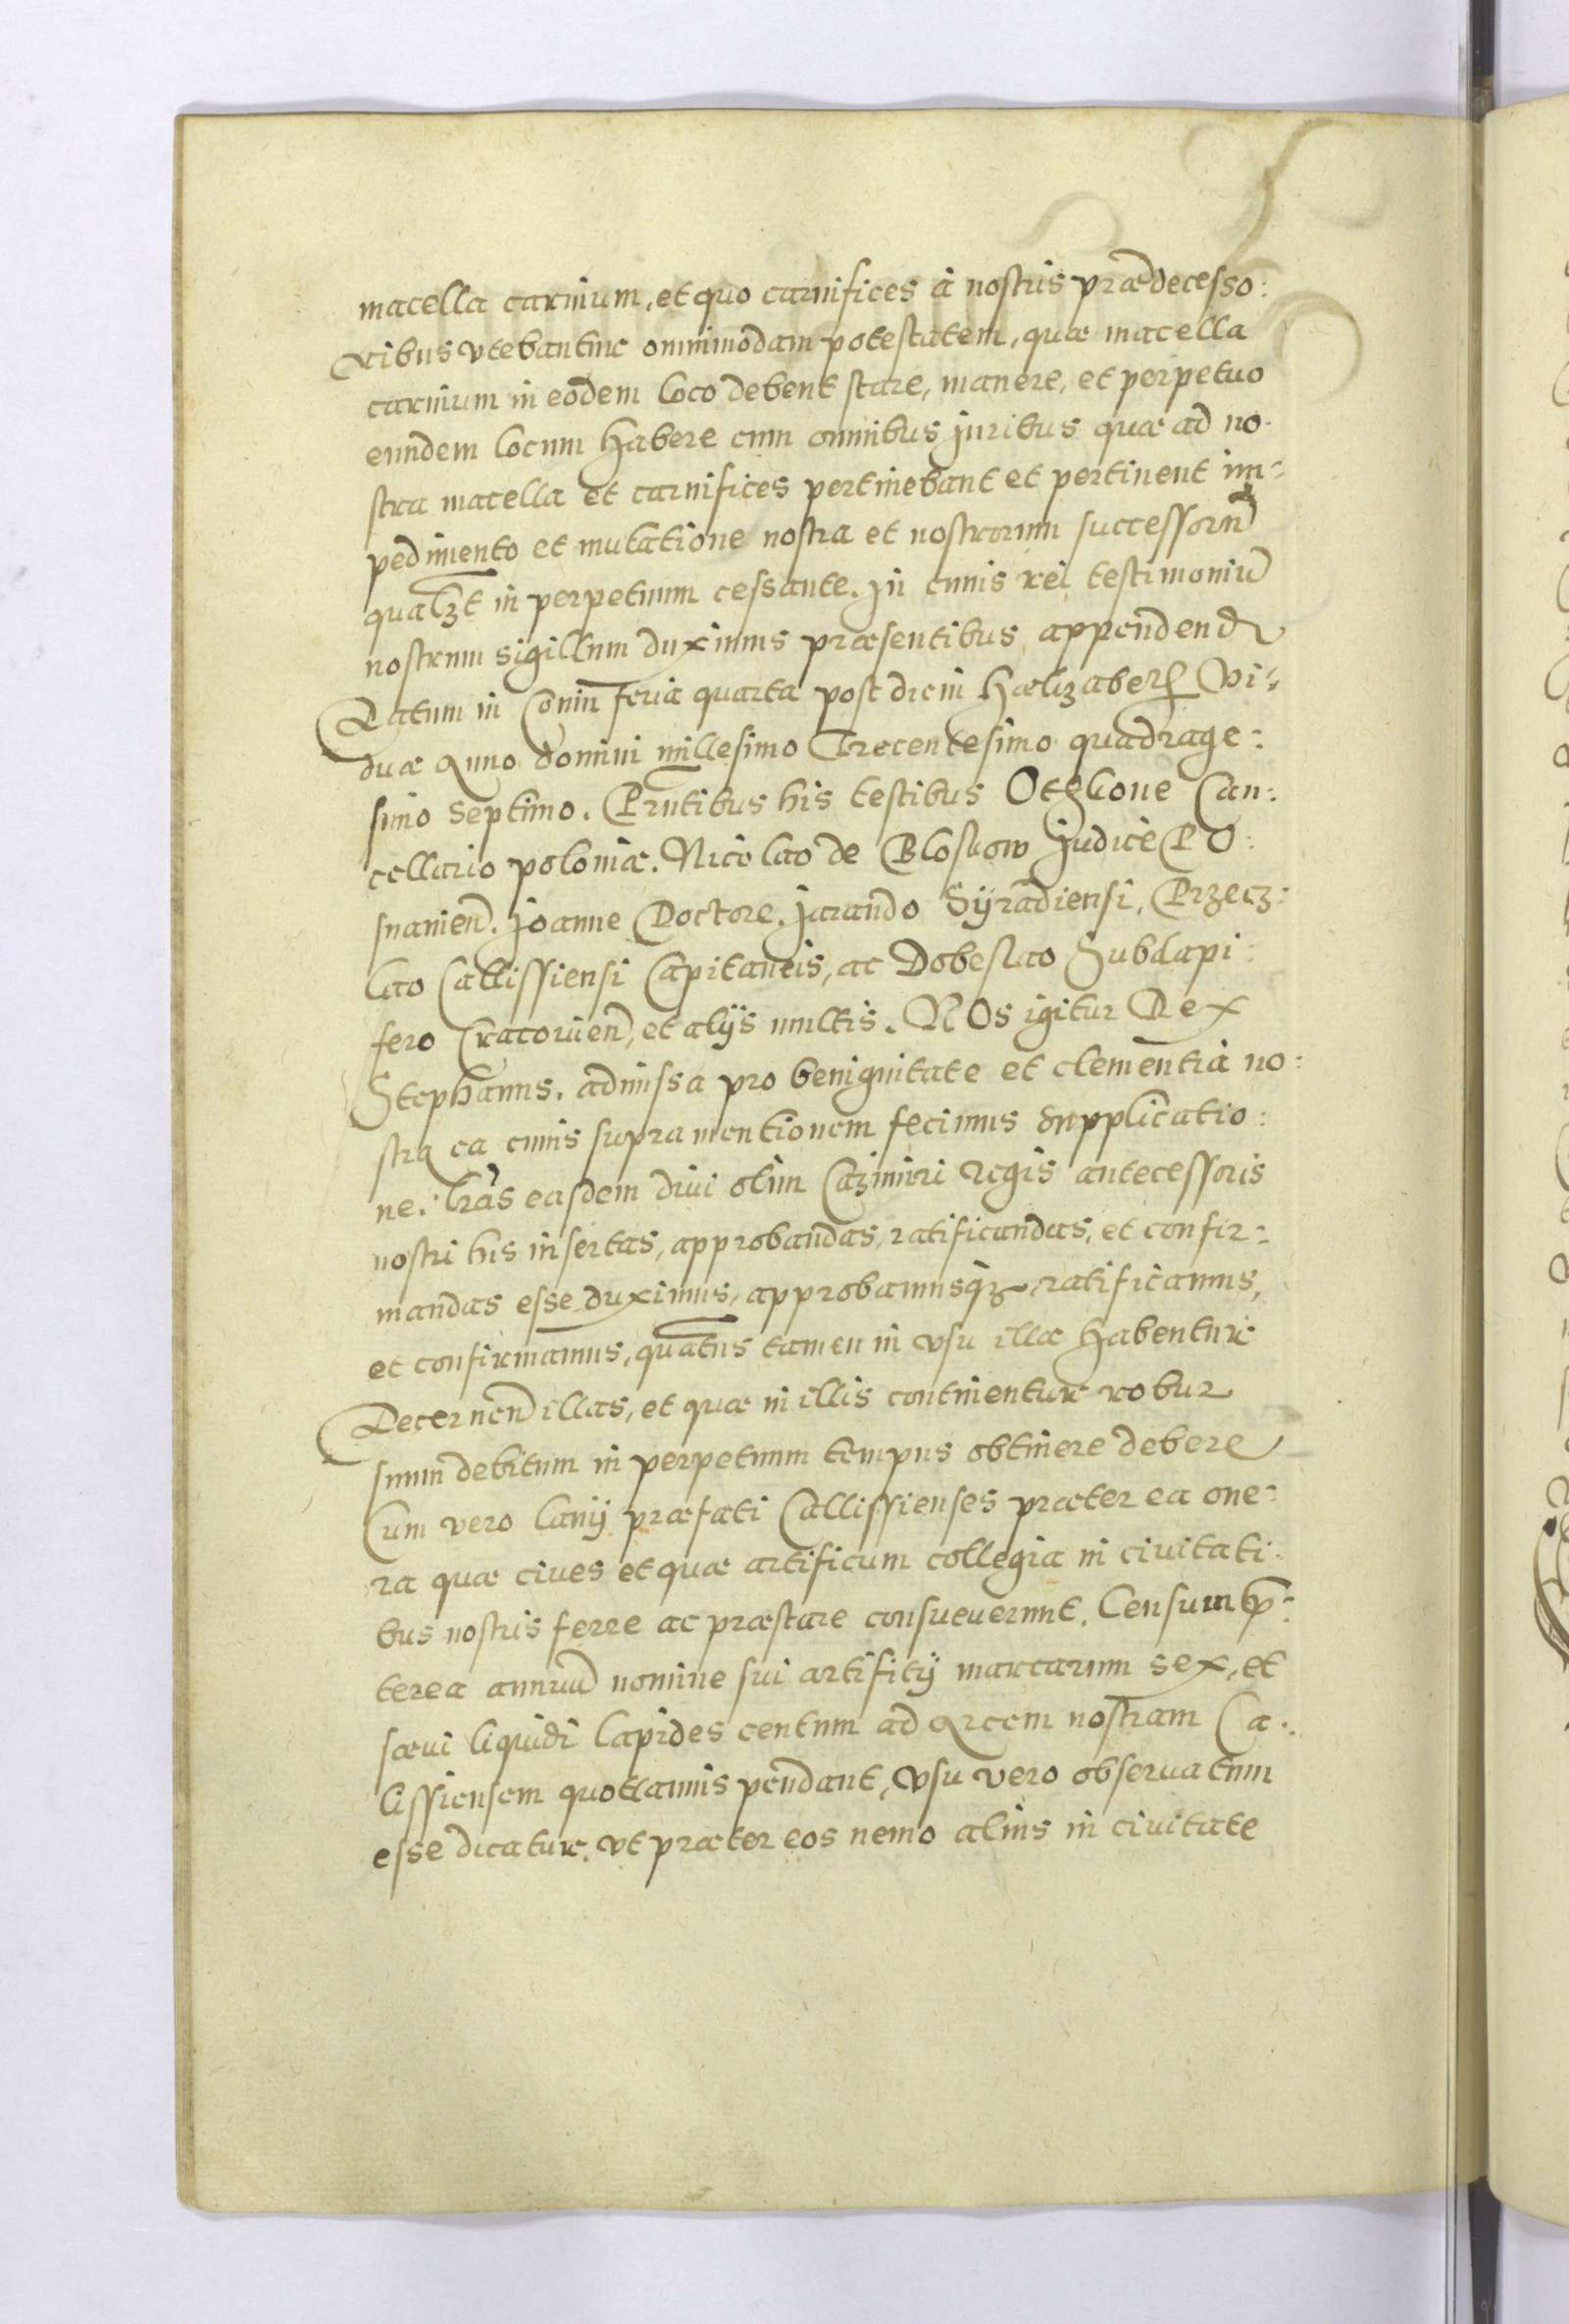 macella carnium, et quo carnifices à nostris prædecesso:
ribus vtebantur omnimodam potestatem, quæ macella
carnium in eodem loco debent stare, manere, et perpetuo
eundem locum habere cum omnibus juribus quæ ad no:
stra macella et carnifices pertinebant et pertinent im:
pedimento et mutatione nostra et nostrorum successorũ
qualzt in perpetuum cessante. In cuius rei testimoniũ
nostrum sigillum duximus præsentibus appendend
Datum in Conin feria quarta post diem Hælizabeth Vi:
duæ Anno domini millesimo Trecentesimo quadrage:
simo septimo. Prntibus his testibus Oteglione Can:
cellario poloniæ. Nicolao de Bloscow Judice PO:
snanien. Joanne Doctore. Jarando Syradiensi, Przecz:
lao Callissiensi Capitaneis, ac Dobeslao Subdapi:
fero Cracouien, et alijs multis. NOs igitur Rex
Stephanus. admissa pro benignitate et clementia no:
stra ea cuius supra mentionem fecimus supplicatio:
ne. lras easdem diui olim Cazimiri Regis antecessoris
nostri his insertas, approbandas, ratificandas, et confir:
mandas esse duximus, approbamusq3 ratificamus,
et confirmamus, quatus tamen in vsu illæ habentur
Decernen illas, et quæ in illis continentur robur
suum debitum in perpetuum tempus obtinere debere
Cum vero lanij præfati Callissienses præter ea one:
ra quæ ciues et quæ artificum collegia in ciuitati:
bus nostris ferre ac præstare consueuerunt. Censum p:
terea annuũ nomine sui artifitij marcarum sex, et
sæui liquidi lapides centum ad Arcem nostram Ca:
lissiensem quotannis pendant, vsu vero obseruatum
esse dicatur. vt præter eos nemo alius in ciuitate